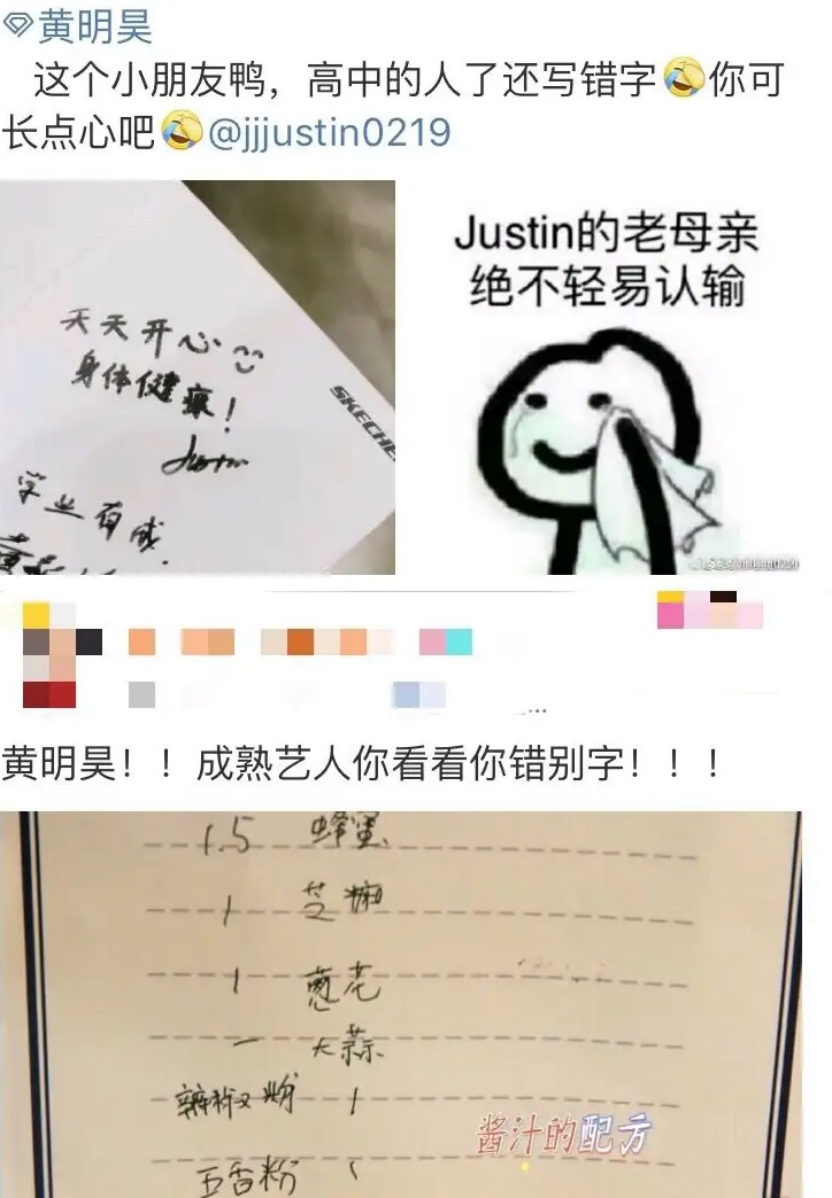 黄明昊
这个小朋友鸭，高中的人了还写错字🤣你可
长点心吧🤣@jjjustin0219
天天开心
身体健
！
Justin
SKECHE
学业有成
Justin的老母亲
绝不轻易认输
...
黄明昊！！成熟艺人你看看你错别字！！！
1.5 蜂蜜
1 芝
1 葱花
一 大蒜
椒粉 1
五香粉 1
酱汁的配方